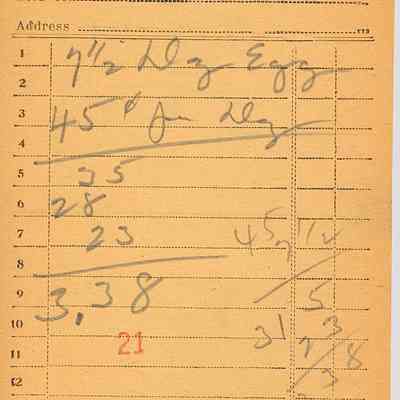 Address
1 7 1/2 Doz Eggs
2
3 45¢ per Doz
4
5 35
6 28
7 23 45 7 1/2
8
9 3.38 5
10 31 3
11 21 7/8
12 3